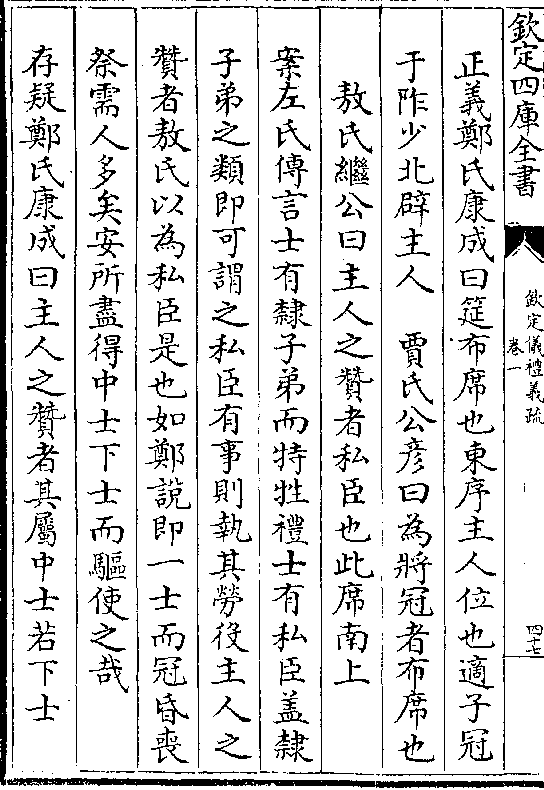 欽定四庫全書
欽定儀禮義疏
卷一
四十七
正義鄭氏康成曰筵布席也東序主人位也適子冠
于阼少北辟主人　賈氏公彦曰為將冠者布席也
敖氏繼公曰主人之贊者私臣也此席南上
案左氏傳言士有隸子弟而特牲禮士有私臣盖隸
子弟之類即可謂之私臣有事則執其勞役主人之
贊者敖氏以為私臣是也如鄭說即一士而冠昏喪
祭需人多矣安所盡得中士下士而驅使之哉
存疑鄭氏康成曰主人之贊者其屬中士若下士